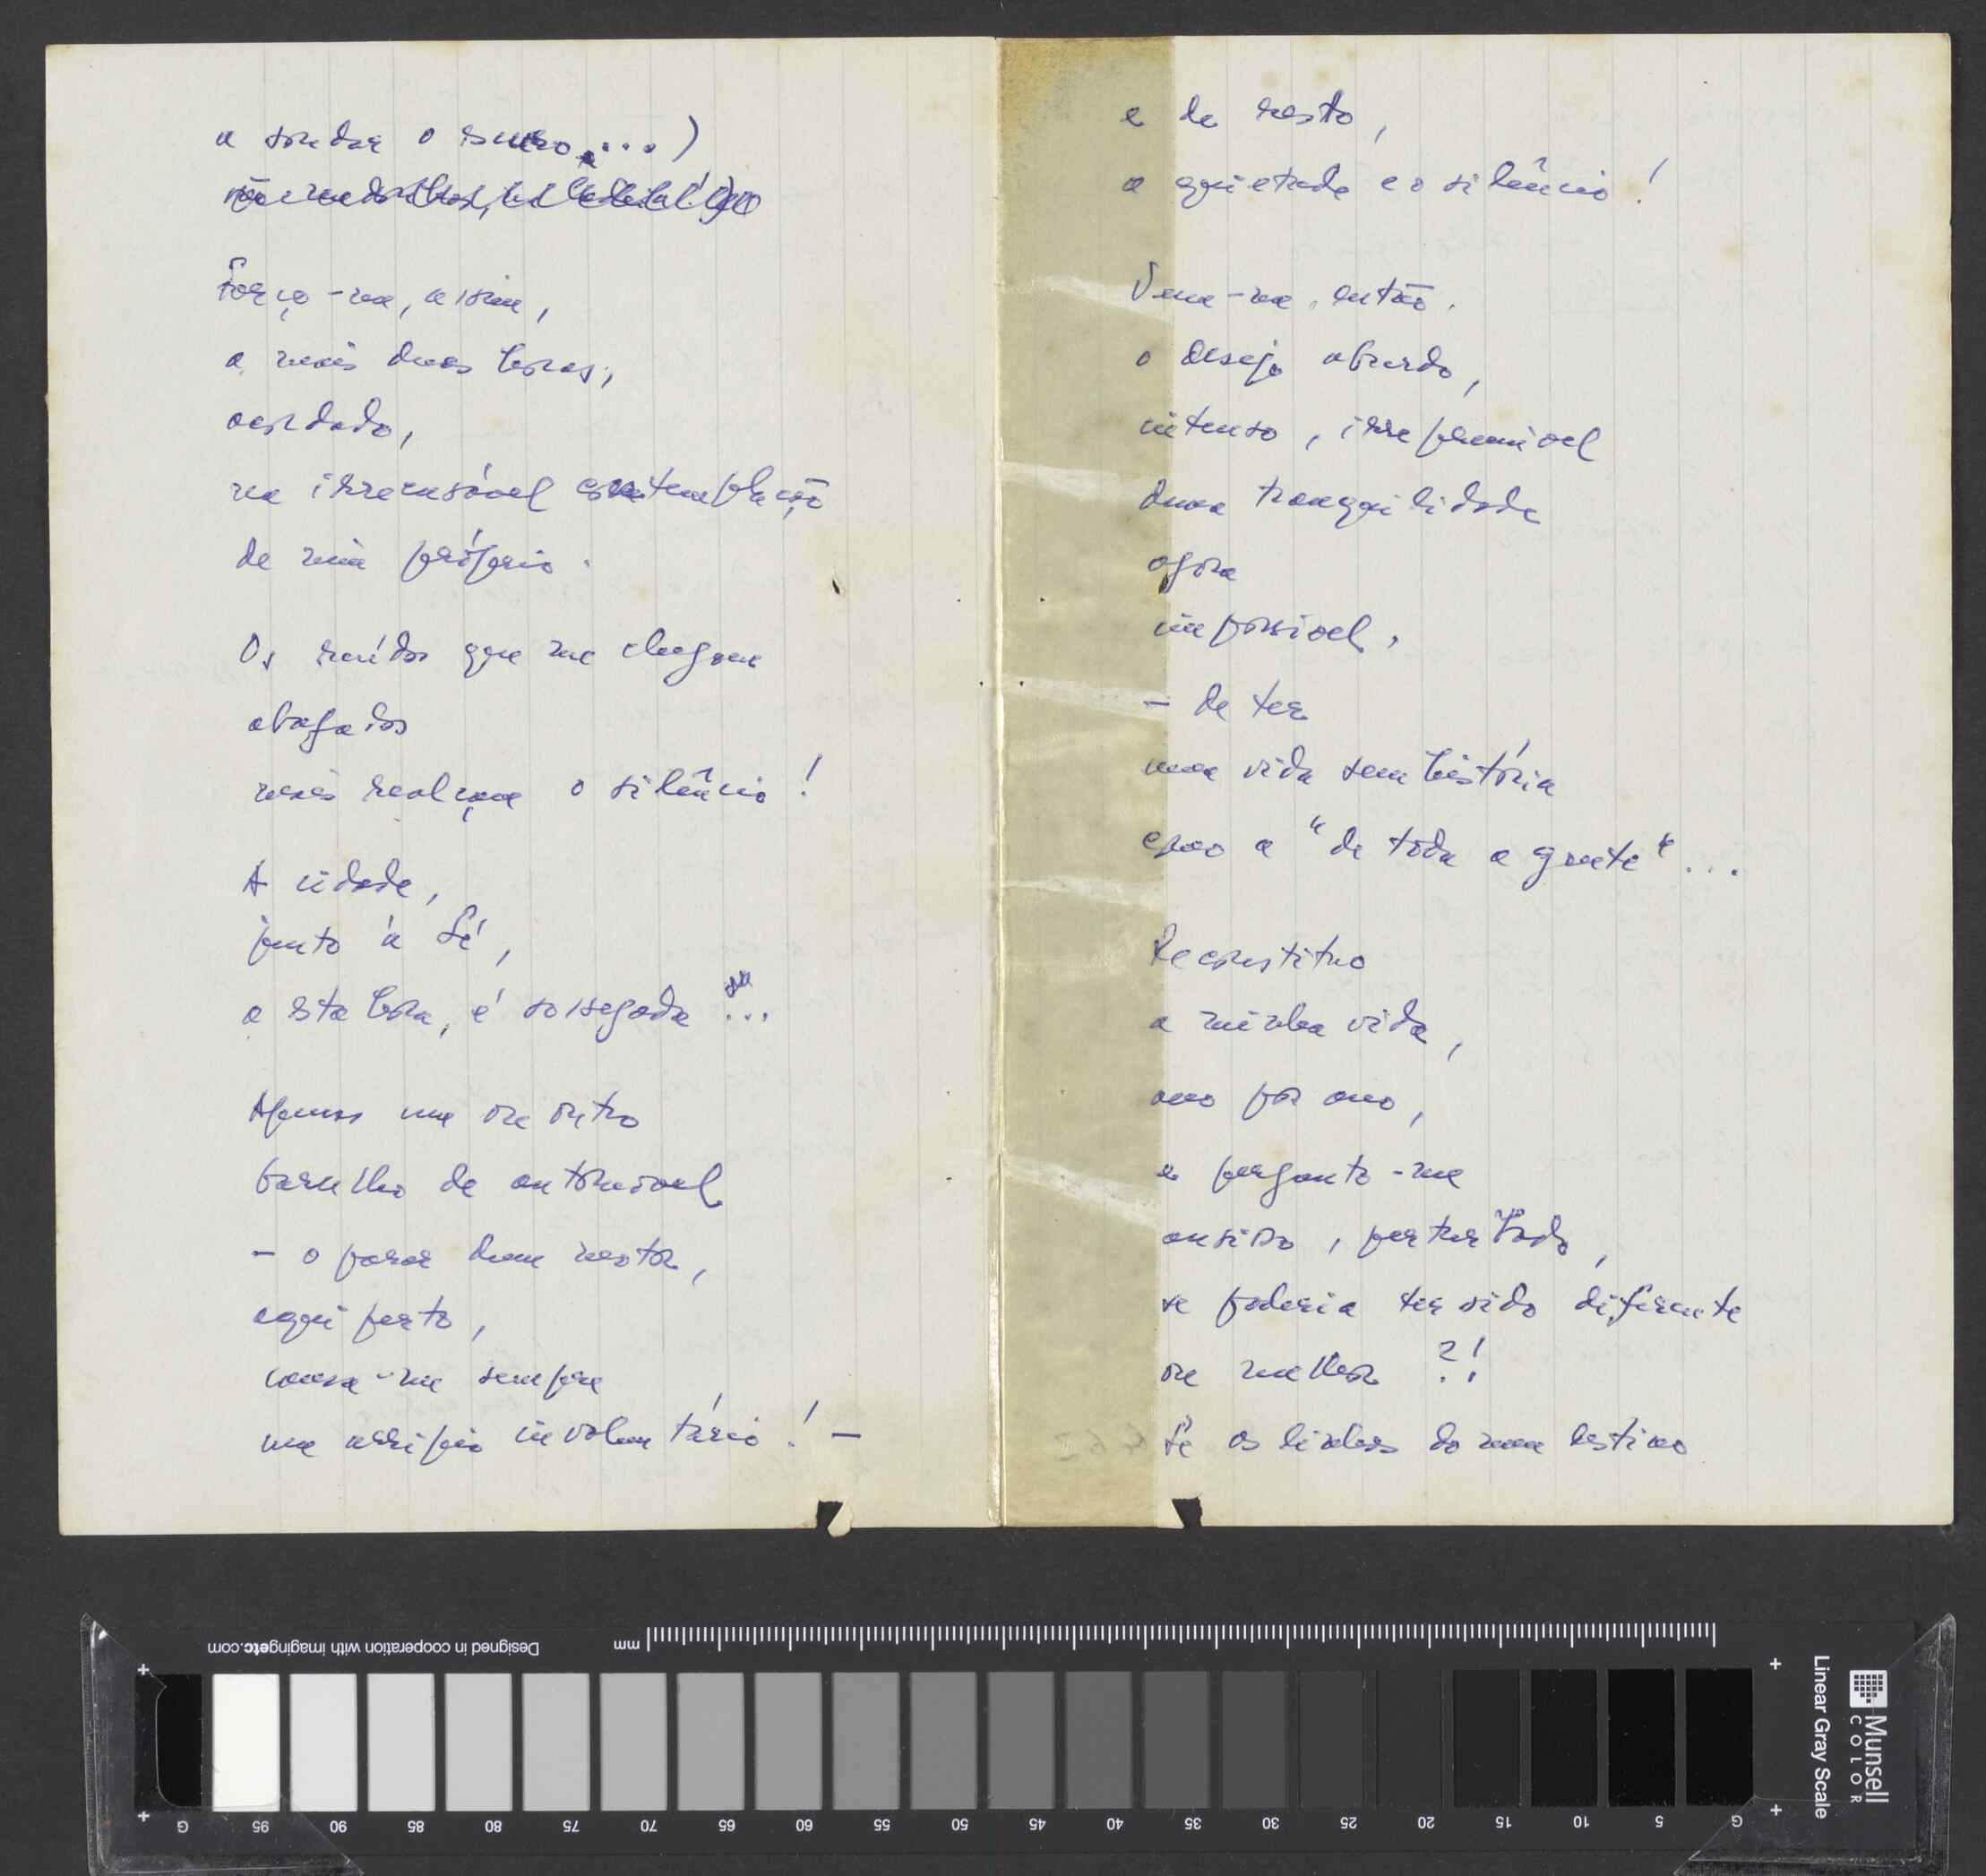 a sondar o escuro....)
Forço-me, assim,
a mais duas horas,
acordado,
na irrecusável contemplação
de mim próprio.
Os ruídos que me chegam
abafados
mais realçam o silêncio!
A cidade,
junto à Sé,
a esta hora, é sossegada...
Apenas um ou outro
barulho de automóvel
- o parar dum motor,
aqui perto,
causa-me sempre
um arrepio involuntário! -
e de resto,
a quietude e o silêncio!
Vem-me, então,
o desejo absurdo,
intenso, irreprimível
duma tranquilidade
agora
impossível,
- de ter
uma vida sem história
como a "de toda a gente"...
Reconstituo
a minha vida,
ano por ano,
e pergunto-me
ansioso, perturbado,
se poderia ter sido diferente
ou melhor?!
Se as linhas do meu destino
Designed in cooperation with imagingetc.com
mm
G 95 90 85 80 75 70 65 60 55 50 45 40 35 30 25 20 15 10 5 G
Linear Gray Scale
Munsell
COLOR